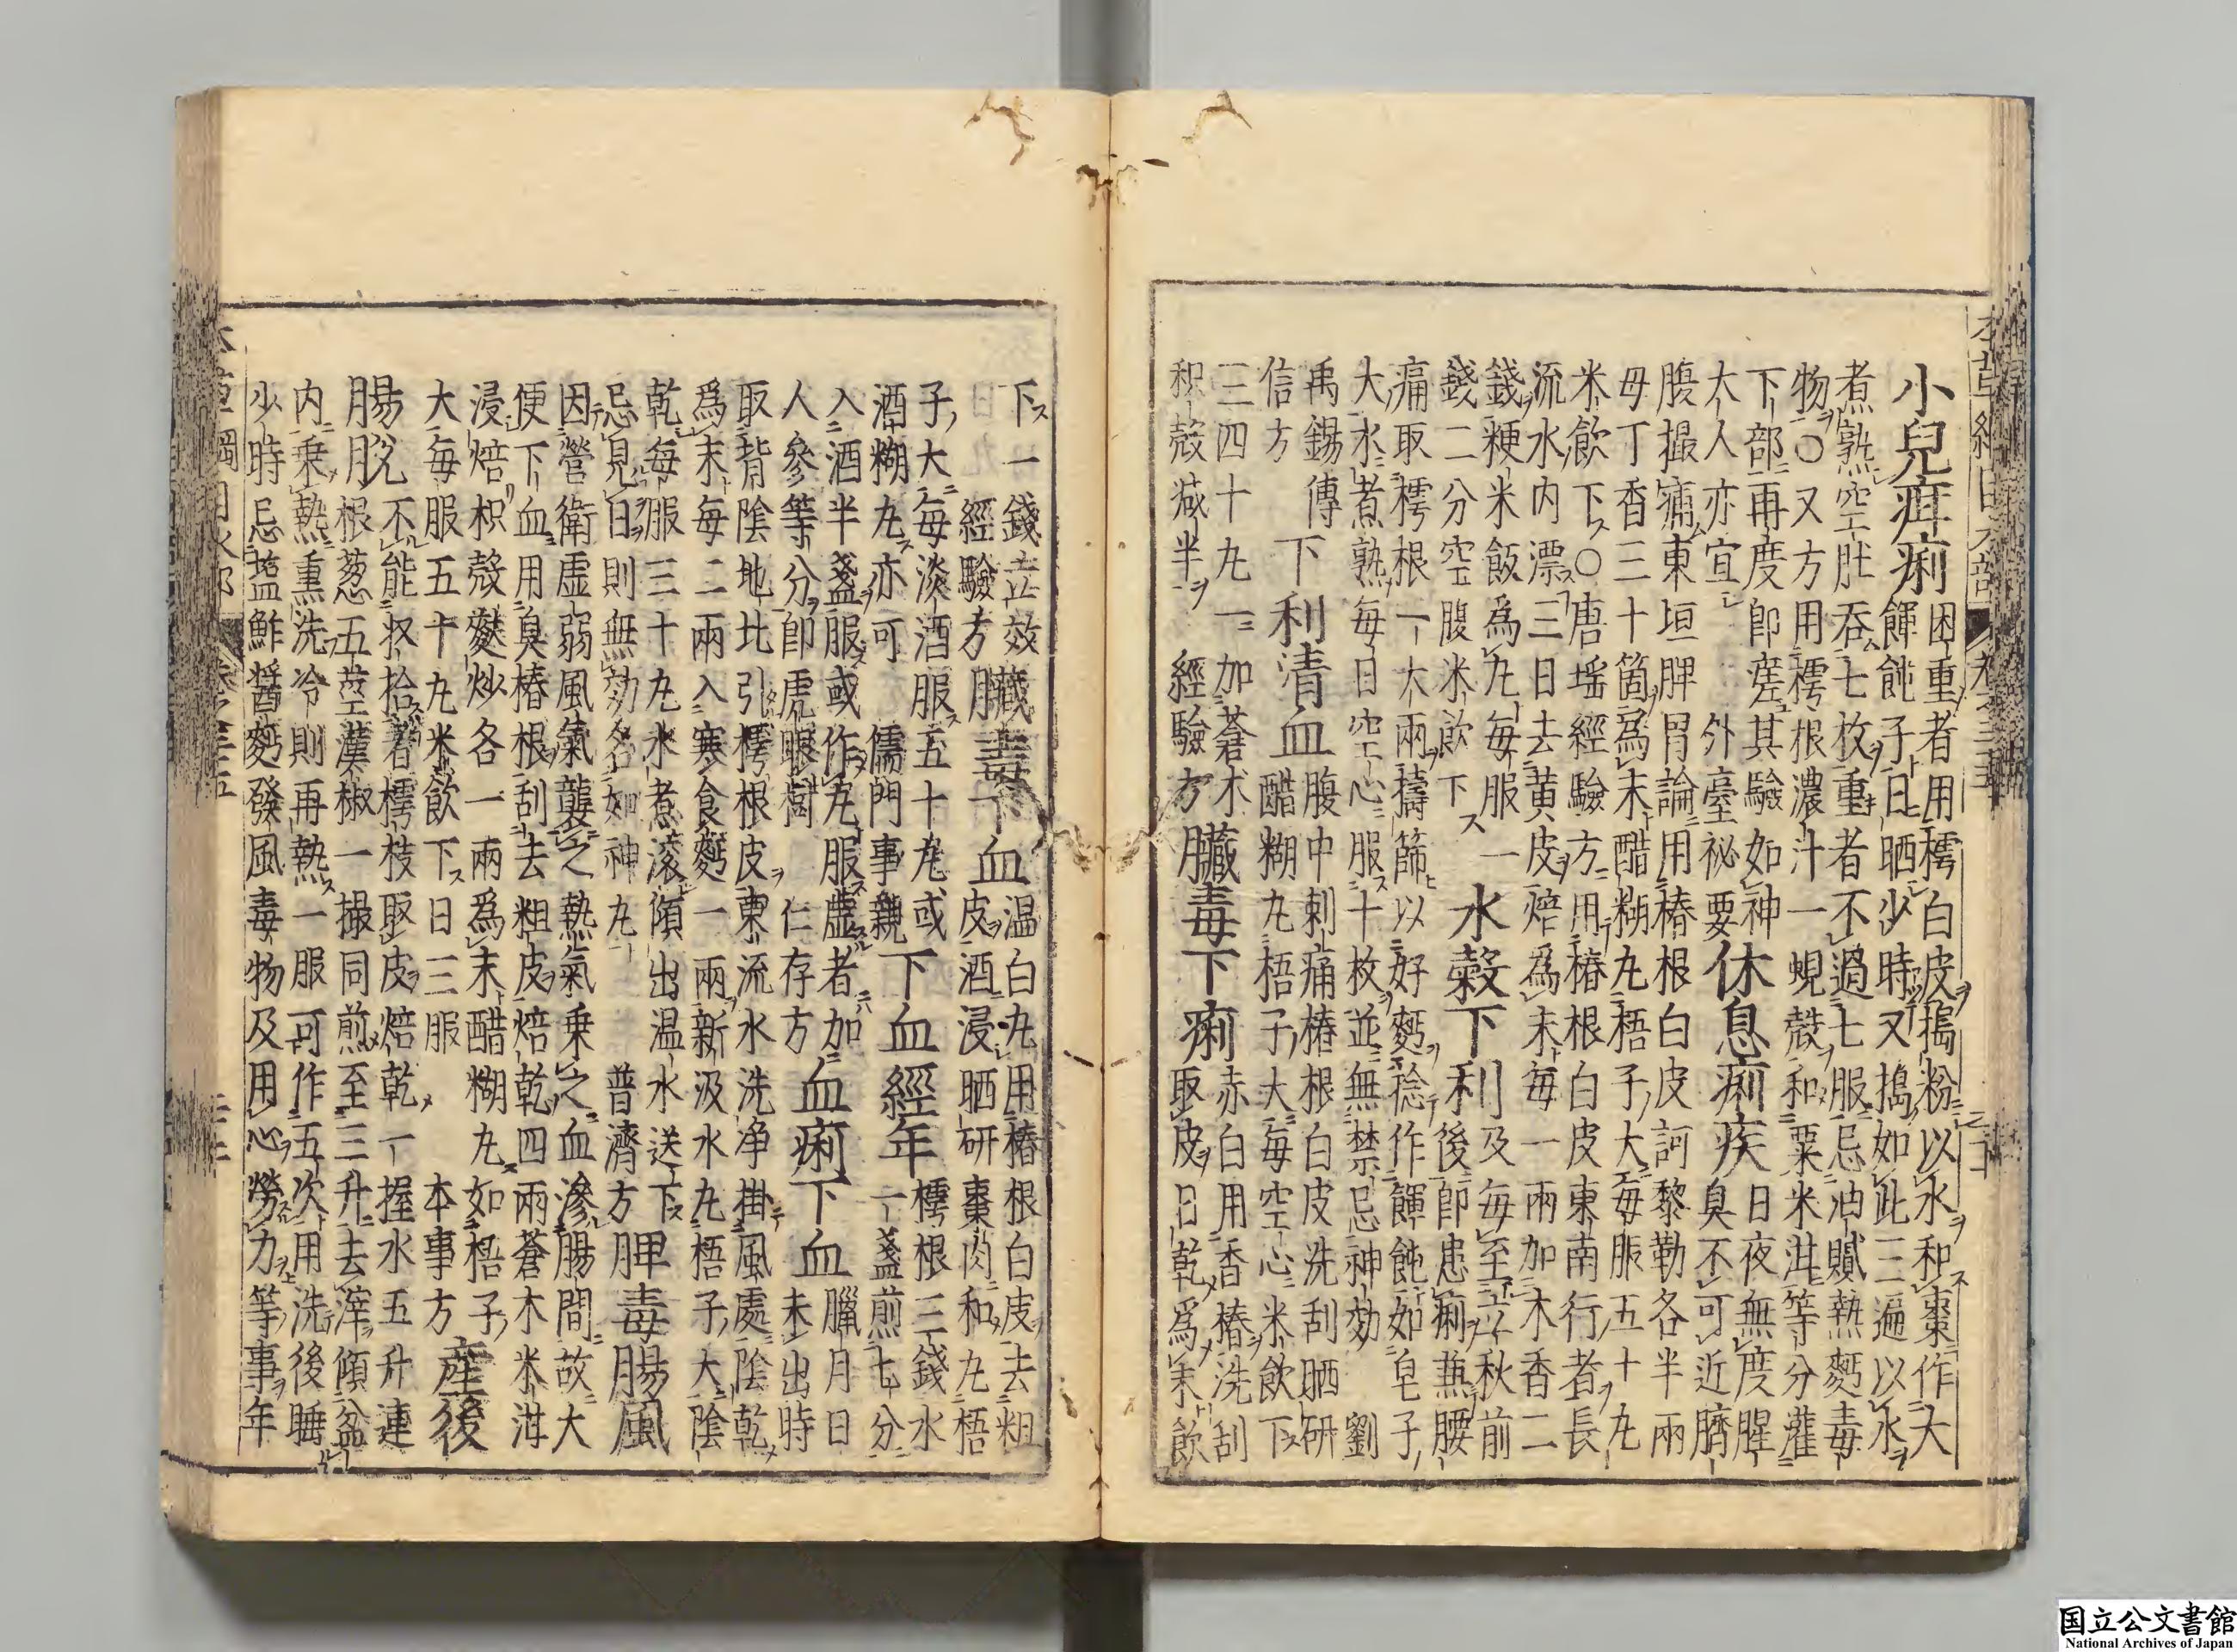 小兒疳痢
困重者用樗白皮搗粉以水和棗作大
餛飩子日晒少時又搗如此三遍以水
煮熟空肚吞七枚重者不過七服忌油膩熱麪毒
物〇又方用樗根濃汁一蜆殼和粟米泔等分灌
下部再度即瘥其驗如神
大人亦宜 外臺祕要
休息痢疾
日夜無度腥
臭不可近臍
腹撮痛東垣脾胃論用椿根白皮訶黎勒各半兩
毋丁香三十箇為末醋糊丸梧子大每服五十丸
米飲下〇唐瑶經驗方用椿根白皮東南行者長
流水内漂三日去黄皮焙為末每一兩加木香二
錢粳米飯為丸每服一
錢二分空腹米飲下
水穀下利
及每至立秋前
後即患痢兼腰
痛取樗根一大兩擣篩以好麪稔作餛飩如皂子
大水煮熟每日空心服十枚並無禁忌神効 劉
禹錫傳
信方
下利清血
腹中刺痛椿根白皮洗刮晒研
醋糊丸梧子大每空心米飲下
三四十丸一加蒼术
枳殼减半 經驗方
臟毒下痢
赤白用香椿洗刮
取皮日乾為末飲
下一錢立效
經驗方
臟毒下血
温白丸用椿根白皮去粗
皮酒浸晒研棗肉和丸梧
子大每淡酒服五十丸或
酒糊丸亦可 儒門事親
下血經年
樗根三錢水
一盞煎七分
入酒半盞服或作丸服虛者加
人參等分即虎眼樹 仁存方
血痢下血
臘月日
未出時
取背陰地北引樗根皮東流水洗净掛風處陰乾
為末每二兩入寒食麪一兩新汲水丸梧子大陰
乾每服三十丸水煮滚傾出温水送下
忌見日則無効名如神丸 普濟方
脾毒腸風
因營衛虛弱風氣襲之熱氣乗之血滲腸間故大
便下血用臭椿根刮去粗皮焙乾四兩蒼木米泔
浸焙枳殼麩炒各一兩為末醋糊丸如梧子
大每服五十丸米飲下日三服 本事方
産後
腸脫
不能収拾者樗枝取皮焙乾一握水五升連
根葱五莖漢椒一撮同煎至三升去滓傾盆
内乗熱熏洗冷則再熱一服可作五次用洗後睡
少時忌鹽鮓醬麪發風毒物及用心勞力等事年
国立公文書館
National Archives of Japan